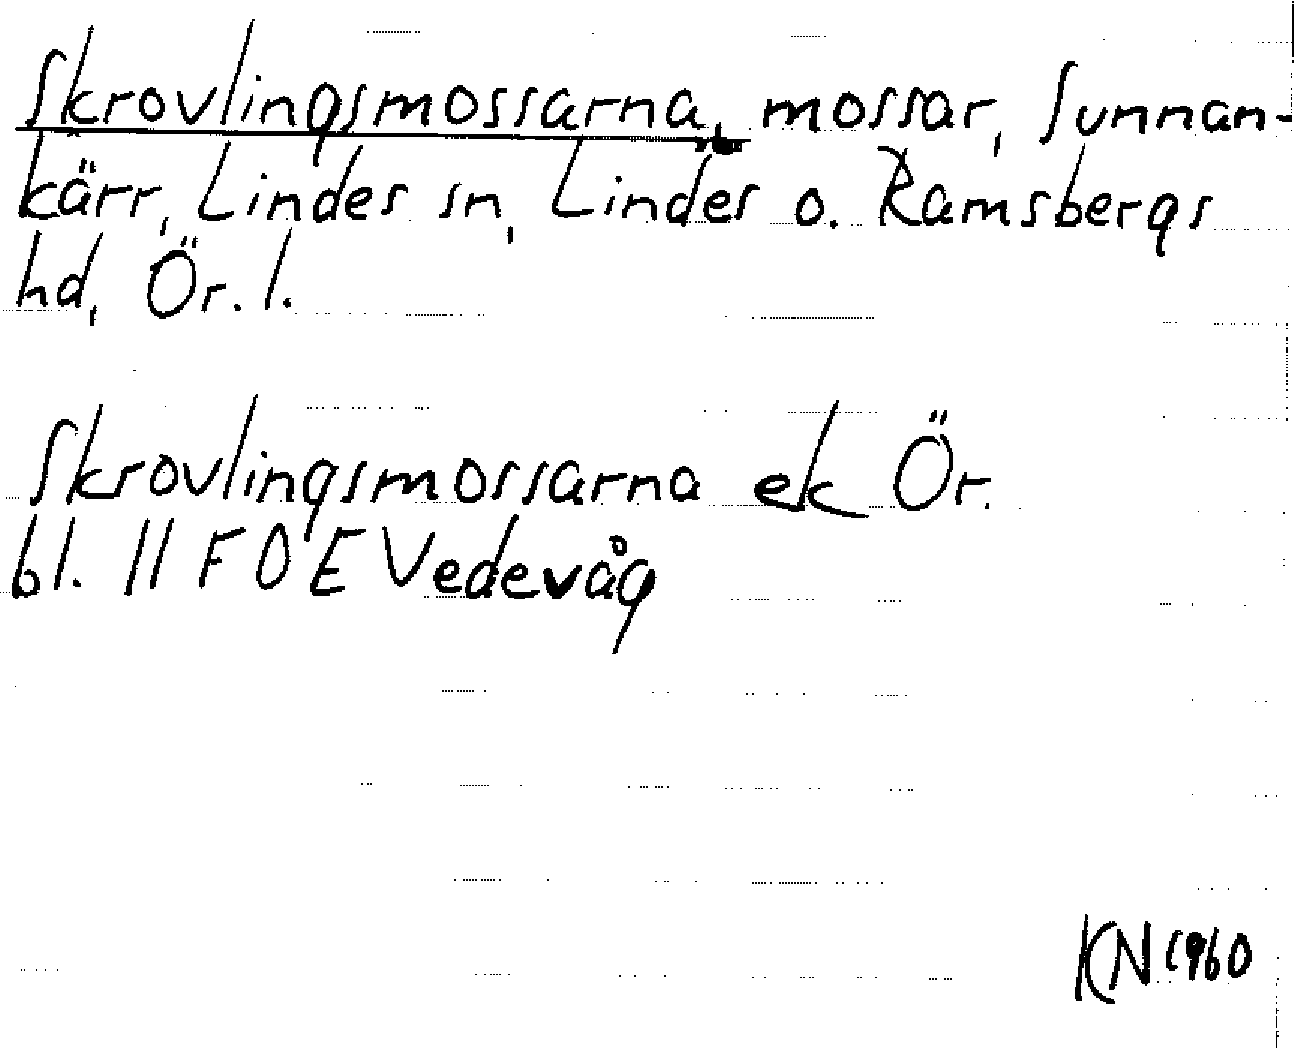 Skrovlingsmossarna, mossar, Sunnan-
kärr, Lindes sn, Lindes o. Ramsbergs
hd, Ör. l.
Skrovlingsmossarna ek Ör.
bl. 11 F 0 E Vedevåg
KN 1960